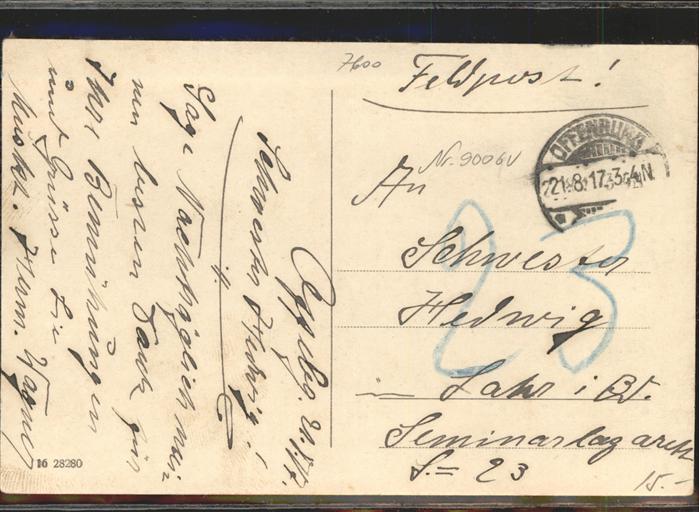 7600
Feldpost!
OFFENBURG
21.8.17.3-4N
Nr. 9006V
An
Schwester
Hedwig
Lahr i. Bd.
Seminarlazarett
S.= 23
23
15.-
Offbg. 21.8.17.
Schwester Hedwig!
Sage Nachträglich mei-
nen besten Dank für
Ihre Bemühungen
und Grüsse Sie
Muskt. Herm. Wagner
16 28280